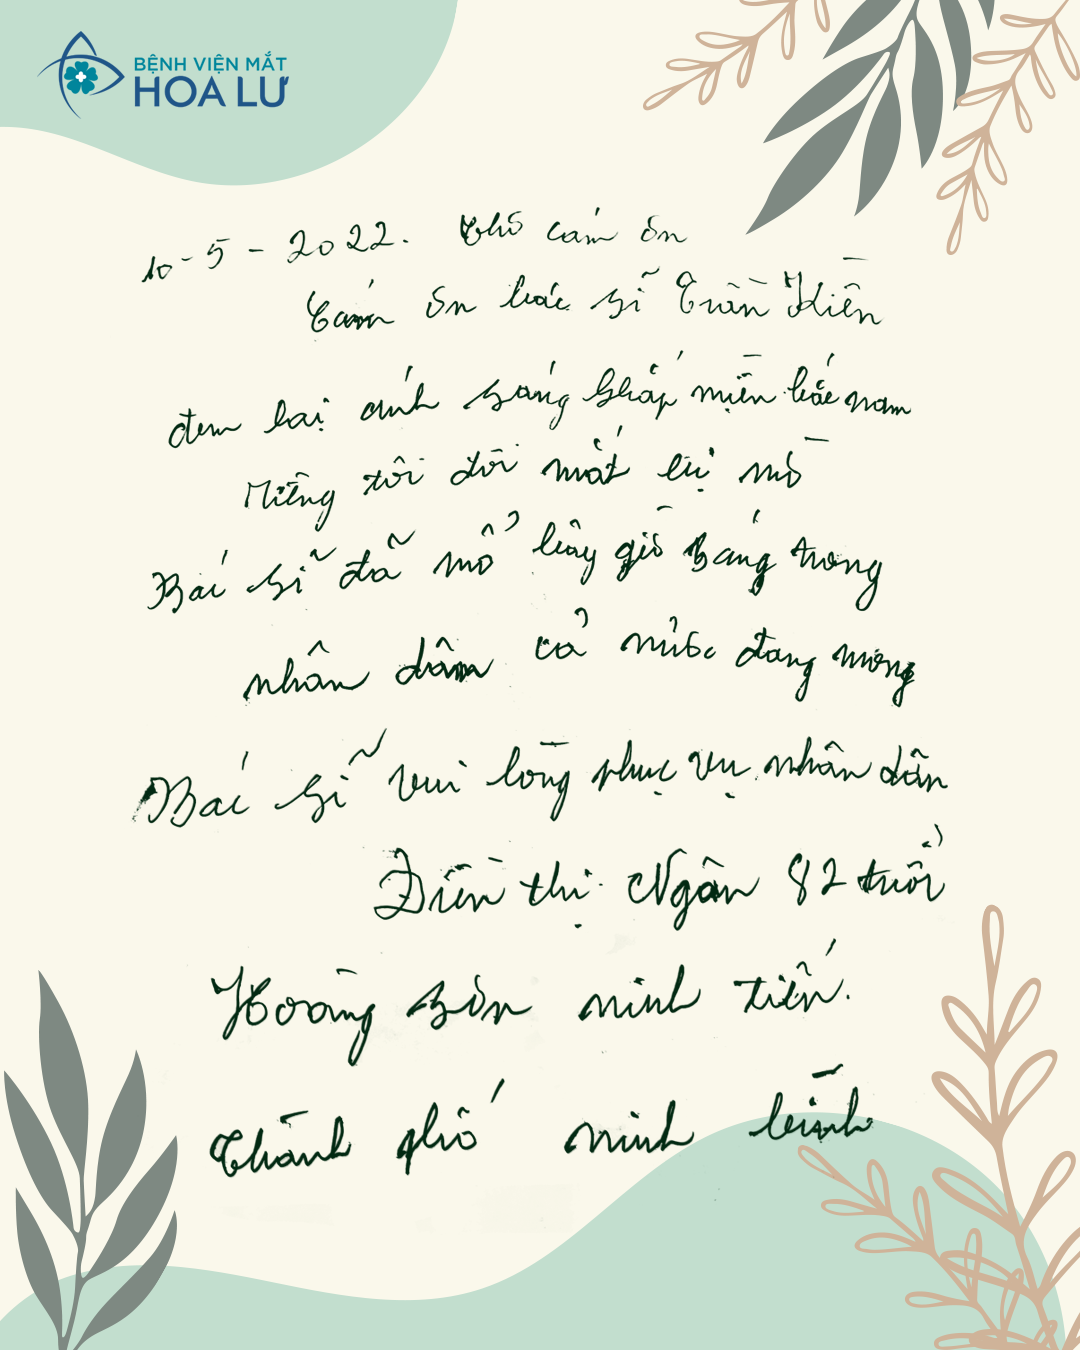 BỆNH VIỆN MẮT
HOA LƯ
10-5-2022. Thơ cảm ơn
Cảm ơn bác sĩ Trần Kiên
đem lại ánh sáng khắp miền bắc nam
Riêng tôi đôi mắt bị mờ
Bác sĩ đã mổ bây giờ sáng trong
nhân dân cả nước đang mong
Bác sĩ vui lòng phục vụ nhân dân
Điền thị Ngân 82 tuổi
Hoàng sơn ninh tiến.
Thành phố ninh bình